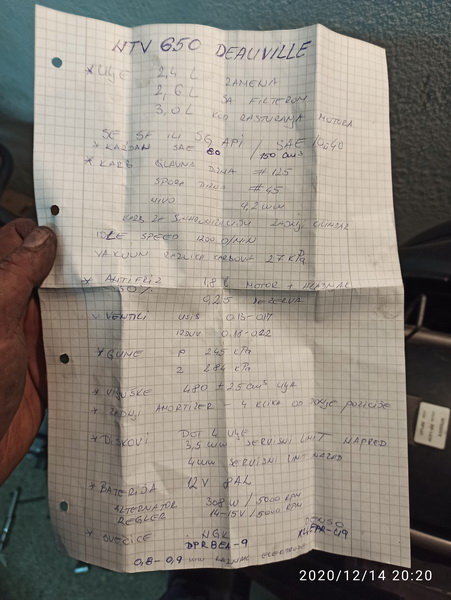 NTV 650 DEAUVILLE
* ULJE 2,4 L ZAMENA
2,6 L SA FILTEROM
3,0 L KOD RASTURANJA MOTORA
SE SF ILI SG API / SAE 10W40
* KARDAN SAE 80 / 150 cm³
* KARB GLAVNA DIZNA # 125
SPORA DIZNA # 45
NIVO 9,2 mm
KARB ZA SINHRONIZACIJU ZADNJI CILINDAR
IDLE SPEED 1200 O/MIN
VAKUUM RAZLIKA KARBOVA 2,7 kPa
* ANTIFRIZ 1,8 L MOTOR + HLADNJAK
50% 0,25 REZERVA
* VENTILI USIS 0.13-0.17
IZDUV 0.18-0.22
* GUME P 245 kPa
Z 284 kPa
* VILJUŠKE 480 ± 2,5 cm³ ULJA
* ZADNJI AMORTIZER - 4 KLIKA OD DONJE POZICIJE
* DISKOVI DOT 4 ULJE
3,5 mm SERVISNI LIMIT NAPRED
4 mm SERVISNI LIMIT NAZAD
* BATERIJA 12V 8AL
ALTERNATOR 308 W / 5000 RPM
REGLER 14-15V / 5000 RPM
* SVEĆICE NGK DENSO
DPR8EA-9
0,8-0,9 mm RAZMAK ELEKTRODE
2020/12/14 20:20